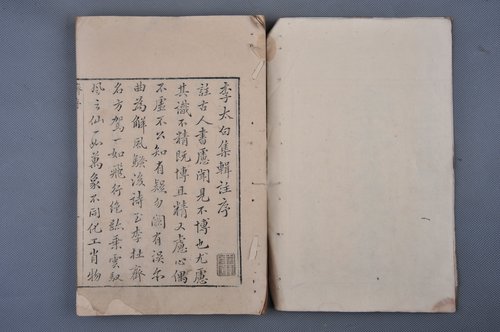 李太白集輯註序
註古人書慮聞見不博也尤慮
其識不精既博且精又慮心偶
不虛不公知有疑勿闕有誤尔
曲為解風騷後詩至李杜齊
名方駕一如飛行絶跡乘雲馭
風之仙一如萬象不同化工肖物